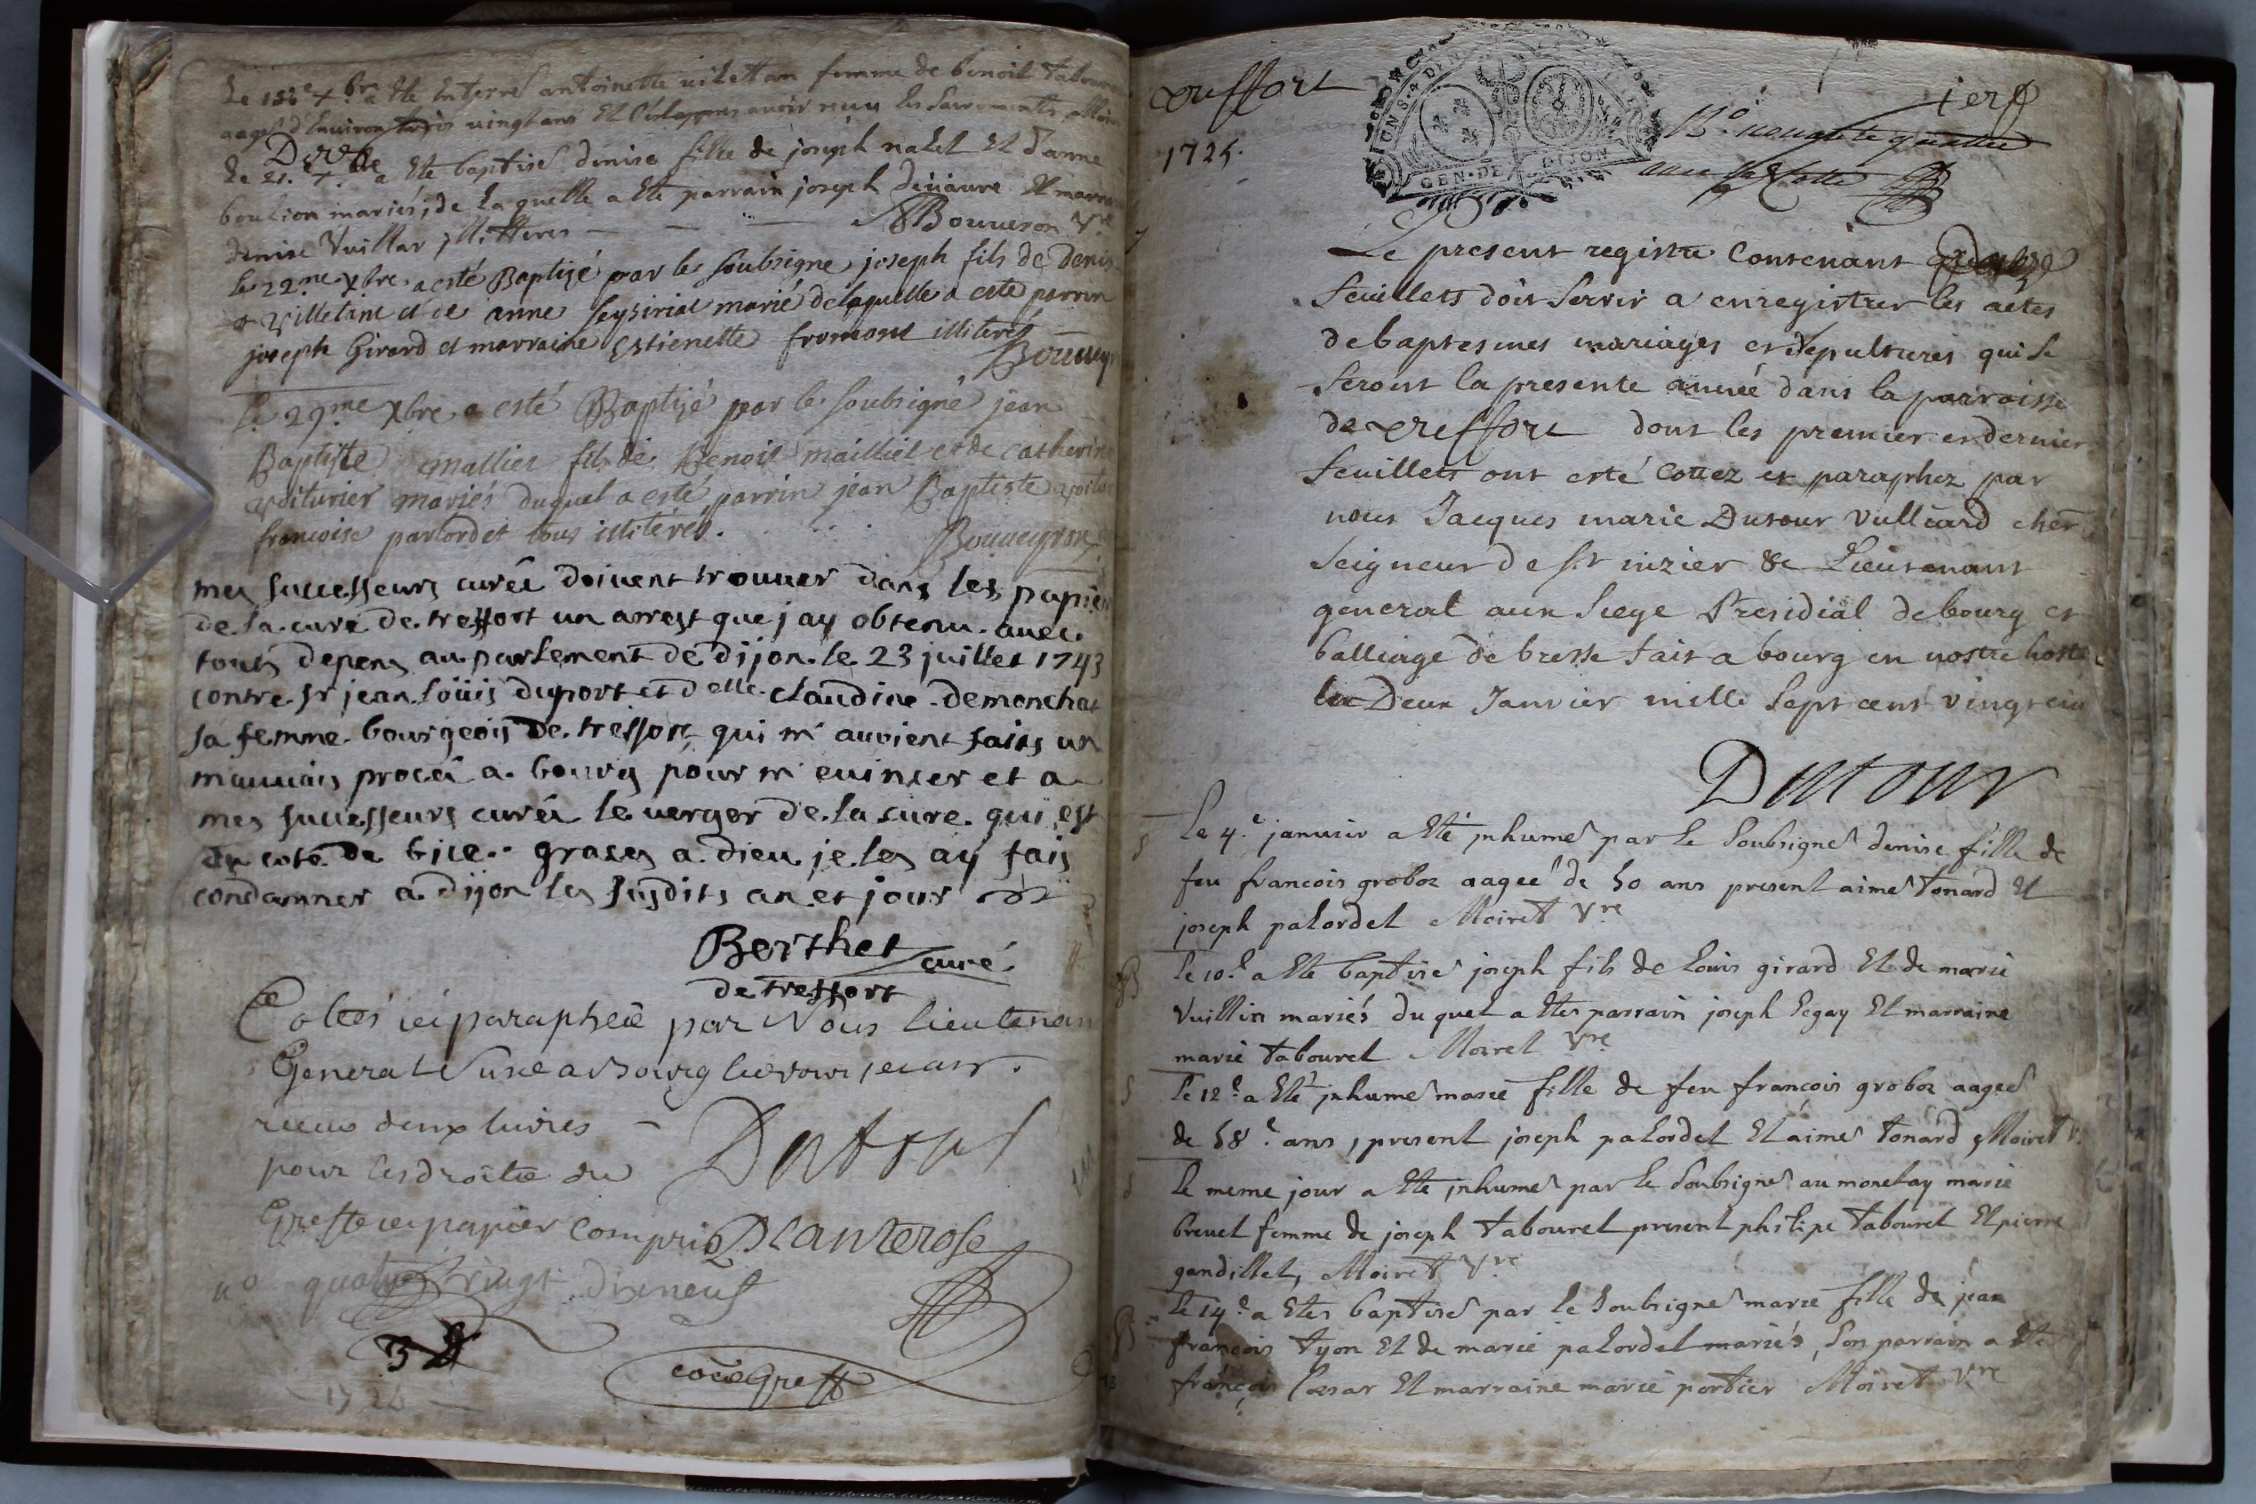 Le 15e xbre a Ete Enterré antoinette femme de benoit
aagé d'Environ vingt ans Et apres avoir reçu les Sacrements
Le 21e xbre a Ete baptisé denise fille de joseph Et d'anne
boulion mariés, de Laquelle a Ete parrain joseph Et marraine
denise Vuillar, illitteres Bouueron Vre
le 22me xbre a esté Baptizé par le soubsigné joseph fils de Denis
Villetant et de anne marié delaquelle a este parrin
joseph Girard et marraine Estienette fromont illiterés
Le 29me xbre a esté Baptizé par le soubsigné jean
Baptiste maillier fils de Benoit mailliet et de Catherine
voiturier mariés duquel a esté parrin jean Baptiste
francoise parlordet tous illiterés. Boueyron
mes successeurs curés doivent trouuer dans les papiers
de la cure de treffort un arrest que j ay obtenu avec
touts depens au parlement de dijon le 23 juillet 1743
contre sr jean loüis duport et delle claudine demonchat
sa femme bourgeois de treffort, qui m'auoient faits un
mauuais procès a bourg pour m'euinser et a
mes successeurs curés le uerger de la cure qui est
du coté de bise graces a dieu je les ay fais
condamner a dijon les susdits an et jour
Berthet curé
de treffort
Cottés et paraphée par Nous lieutenant
General a Bourg
receu deux livres Dutour
pour les droits du
Greffe et papier Compris Planterose
no quatre vingt dixneuf
38
1724
Treffort
1725.
ier
GEN·DE DIJON
Le present registre Contenant
feuillets doit servir a enregistrer les actes
de baptesmes mariages et sepultures qui se
feront la presente année dans la parroisse
de treffort dont les premier et dernier
feuillets ont esté cottez et paraphez par
nous Jacques marie Dutour vulliard cher
seigneur de st nizier & Lieutenant
general aux siege Presidial de bourg et
balliage de bresse fait a bourg en nostre hostel
le Deux Janvier mille sept cent vingt cin
Dutour
S Le 4e janvier a Eté inhumé par le Soubsigné denise fille de
feu francois groboz aagee de 50 ans present aimé tonard Et
joseph palordet Moiret Vre
B le 10e a Ete baptisé joseph fils de Louis girard Et de marie
Vuillin mariés duquel a Ete parrain joseph legay Et marraine
marie tabouret Moiret Vre
S le 12e a Eté inhumé marie fille de feu françois groboz aagee
de 58e ans, present joseph palordet Et aimé tonard, Moiret v.
S le meme jour a Ete inhumé par le Soubsigné au monetay marie
breuet femme de joseph tabouret present philipe tabouret Et pierre
gandillet, Moiret Vre
B le 14e a Ete baptisé par le Soubsigné marie fille de jean
françois tyon Et de marie palordet mariés, Son parrain a Ete
françois Coesar Et marraine marie portier Moiret Vre